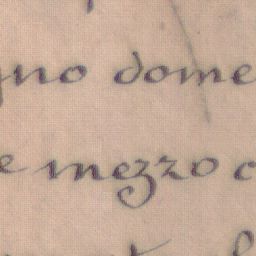 gno dome
e mezzo c